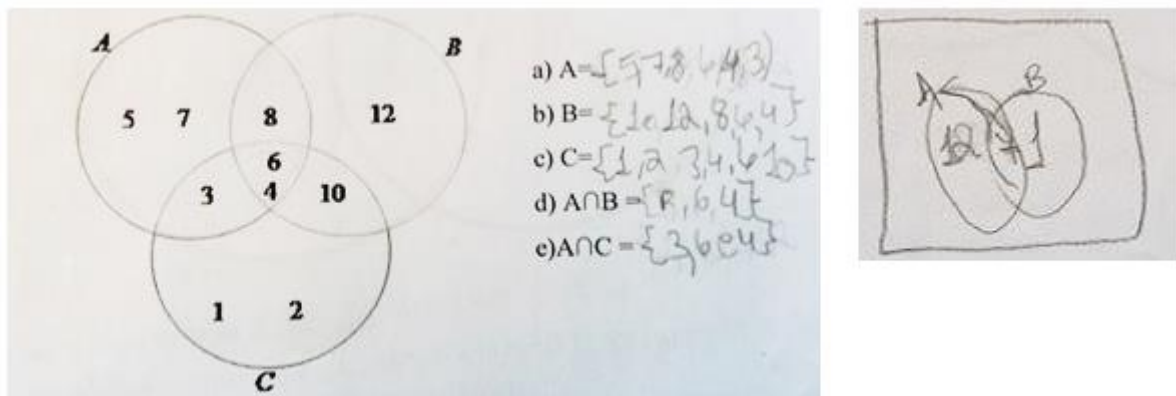 A B
5 7 8 12
6
3 4 10
1 2
C
a) A={5,7,8,6,4,3}
b) B={10,12,8,6,4}
c) C={1,2,3,4,6,10}
d) A∩B={8,6,4}
e) A∩C = {3,6e4}
A B
12 7 1